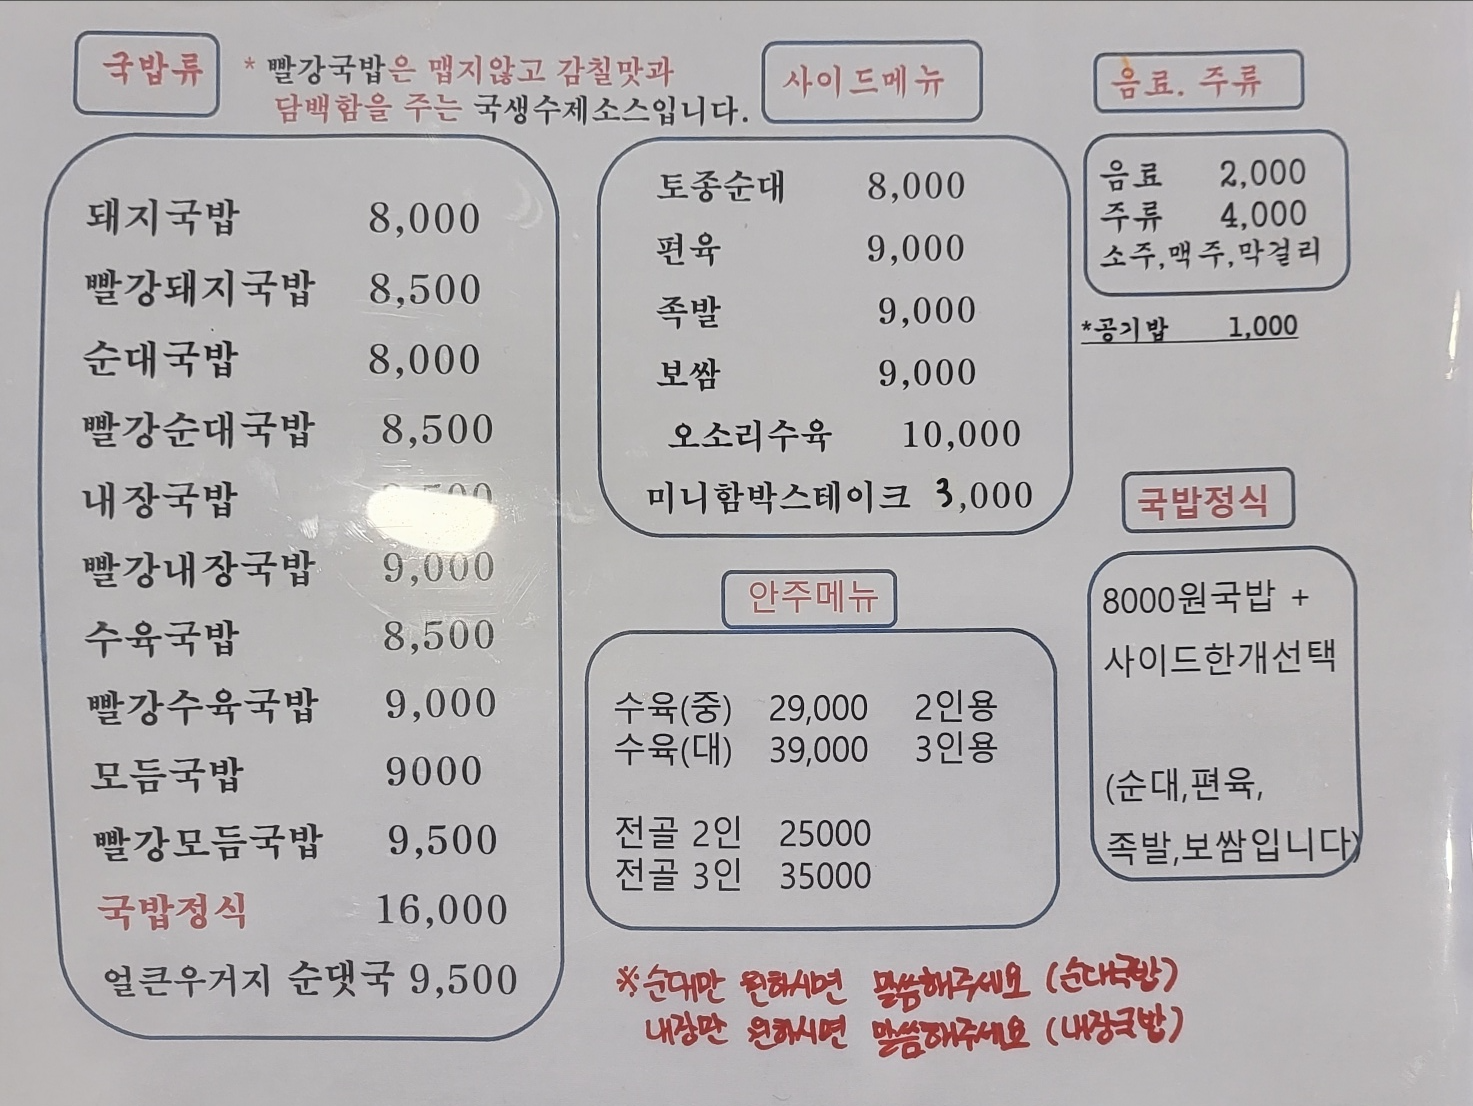 국밥류
* 빨강국밥은 맵지않고 감칠맛과
담백함을 주는 국생수제소스입니다.
돼지국밥 8,000
빨강돼지국밥 8,500
순대국밥 8,000
빨강순대국밥 8,500
내장국밥
빨강내장국밥 9,000
수육국밥 8,500
빨강수육국밥 9,000
모듬국밥 9000
빨강모듬국밥 9,500
국밥정식 16,000
얼큰우거지 순댓국 9,500
사이드메뉴
토종순대 8,000
편육 9,000
족발 9,000
보쌈 9,000
오소리수육 10,000
미니함박스테이크 3,000
안주메뉴
수육(중) 29,000 2인용
수육(대) 39,000 3인용
전골 2인 25000
전골 3인 35000
※ 순대만 원하시면 말씀해주세요 (순대국밥)
내장만 원하시면 말씀해주세요 (내장국밥)
음료. 주류
음료 2,000
주류 4,000
소주,맥주,막걸리
*공기밥 1,000
국밥정식
8000원국밥 +
사이드한개선택
(순대,편육,
족발,보쌈입니다)